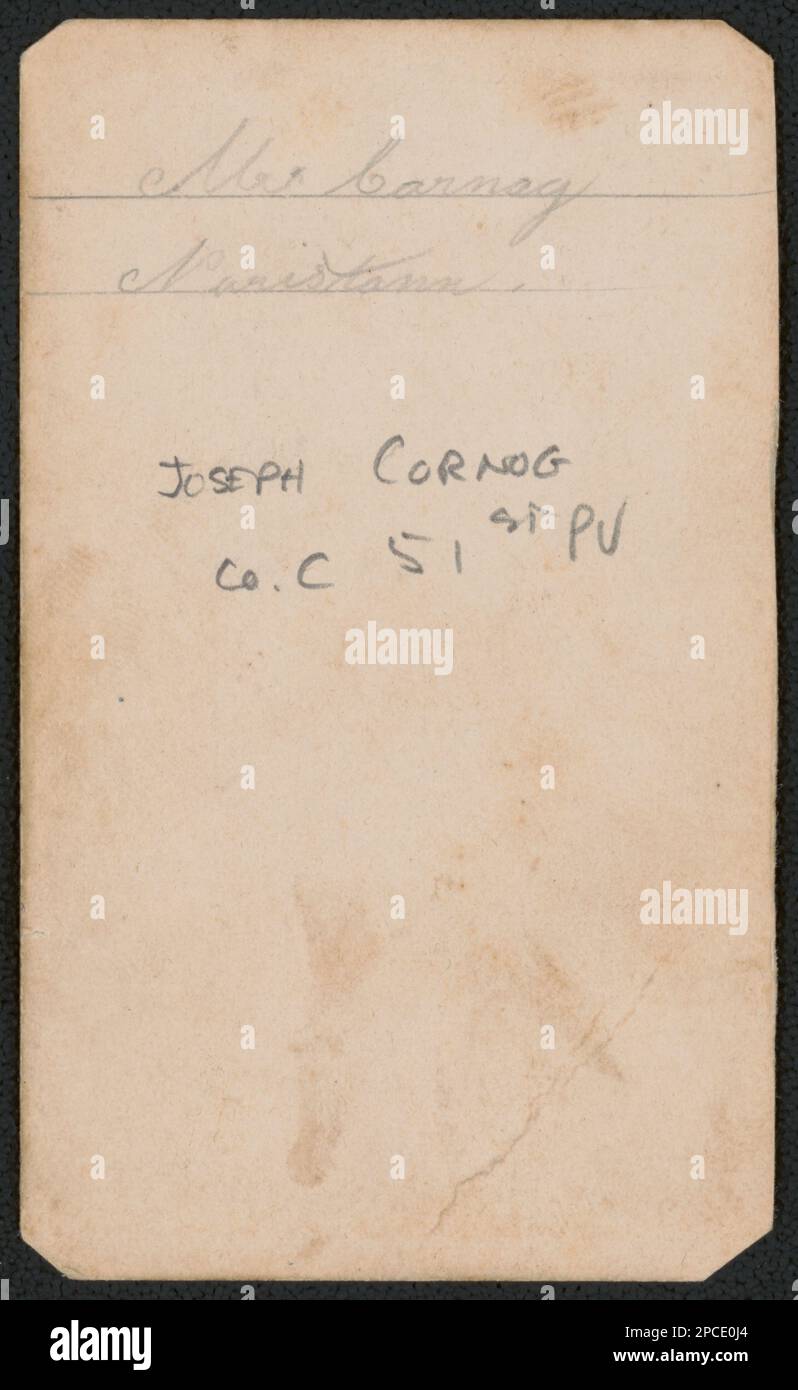 Mr Carnag
Noristown.
JOSEPH CORNOG
Co. C 51 st PV
alamy
alamy
alamy
alamy
Image ID: 2PCE0J4
www.alamy.com